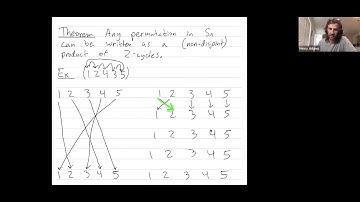 Theorem Any permutation in Sn
can be written as a (non-disjoint)
product of 2-cycles.
Ex (1 2 4 3 5)
1 2 3 4 5
1 2 3 4 5
1 2 3 4 5
1 2 3 4 5
1 2 3 4 5
1 2 3 4 5
1 2 3 4 5